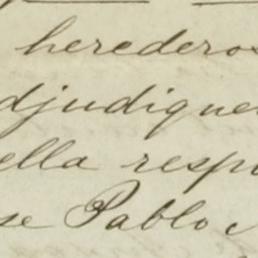 herederos
djudique
ella resp
se Pablo